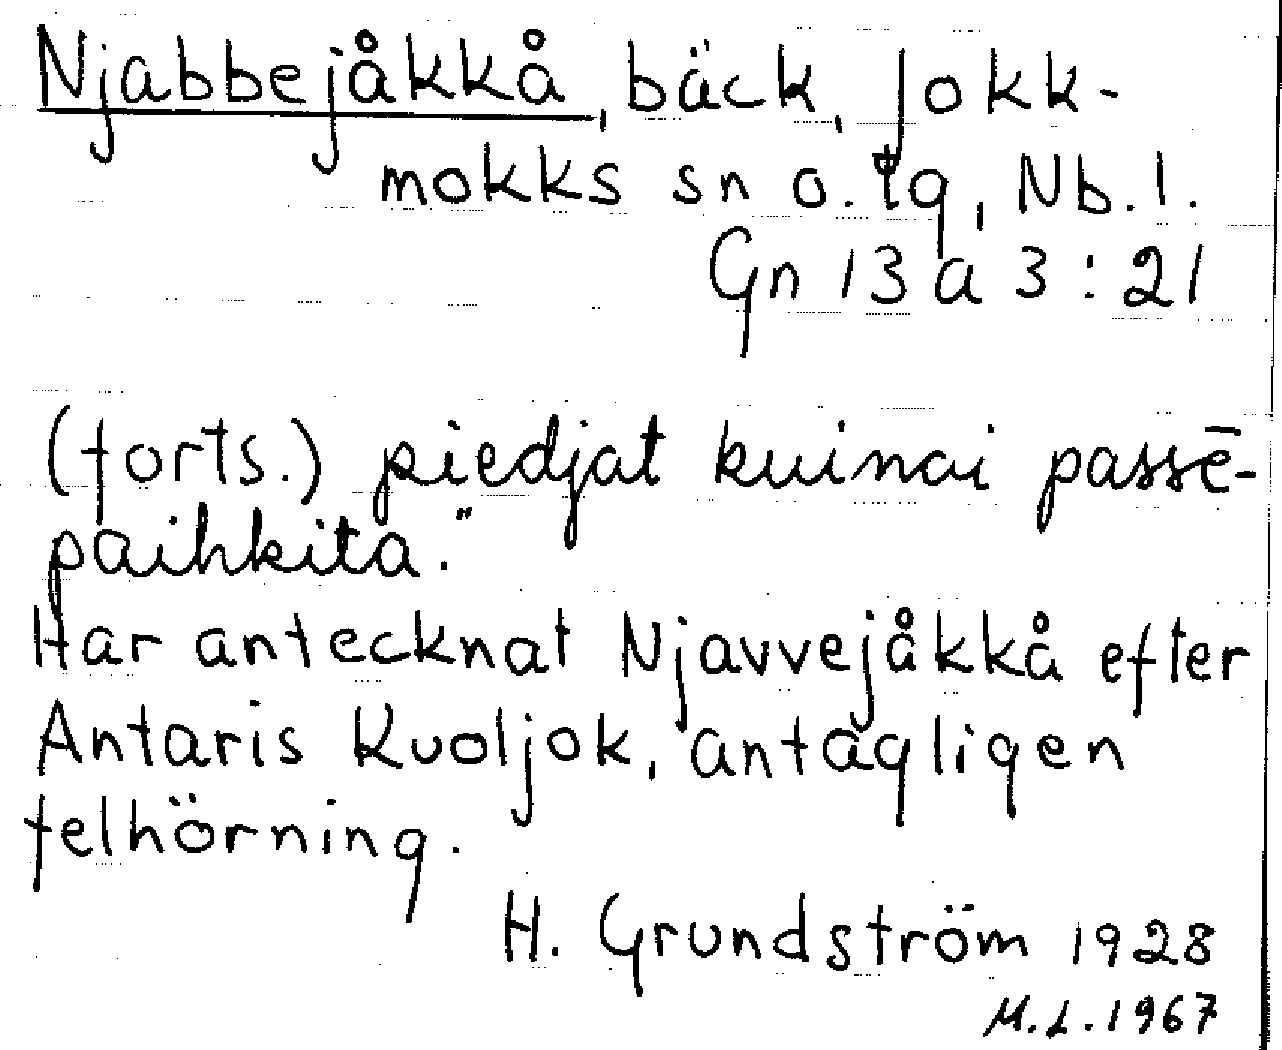 Njabbejåkkå, bäck, Jokk-
mokks sn o. tg, Nb. l.
Gn 13 a 3:21
(forts.) piedjat kuinai passē-
paihkita."
Har antecknat Njavvejåkkå efter
Antaris Kuoljok, antagligen
felhörning.
H. Grundström 1928
M.L. 1967